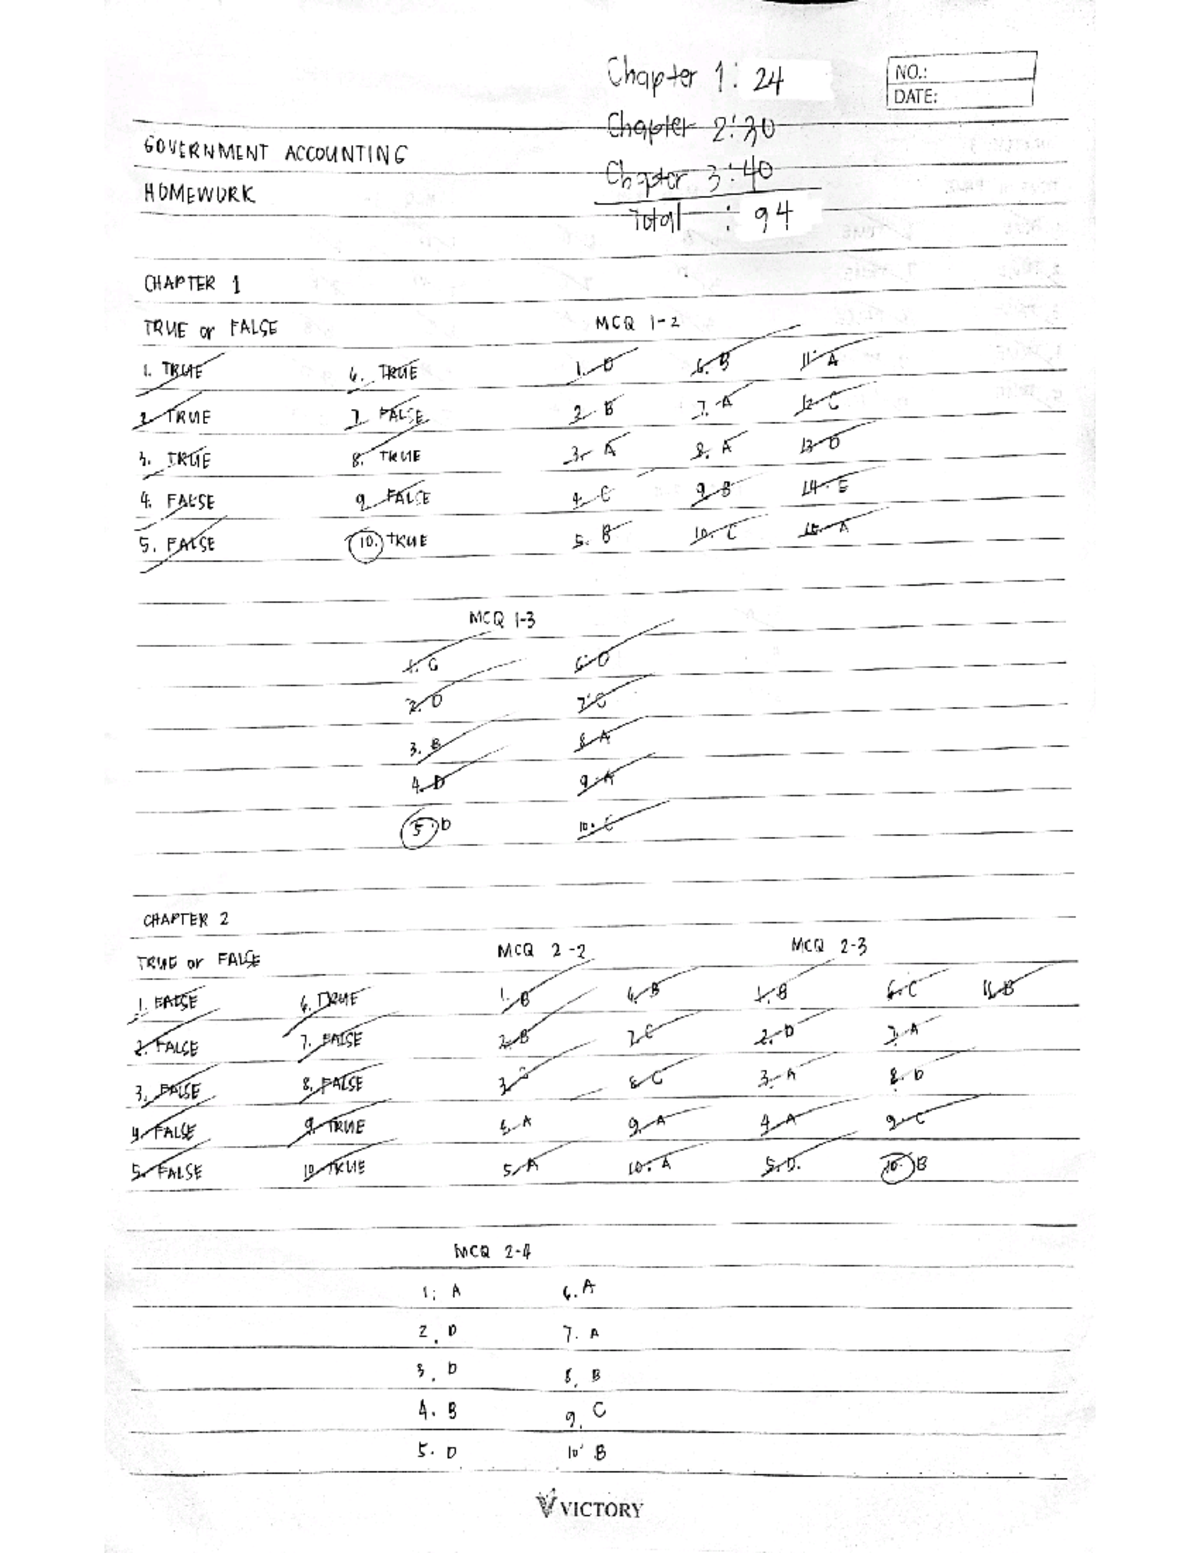 Chapter 1: 24
NO.:
DATE:
Chapter 2: 30
GOVERNMENT ACCOUNTING
Chapter 3: 40
HOMEWORK
Total : 94
CHAPTER 1
TRUE or FALSE MCQ 1-2
1. TRUE 6. TRUE 1. D 6. B 11. A
2. TRUE 7. FALSE 2. B 7. A 12. C
3. TRUE 8. TRUE 3. A 8. A 13. D
4. FALSE 9. FALSE 4. C 9. B 14. E
5. FALSE 10. TRUE 5. B 10. C 15. A
MCQ 1-3
1. C 6. D
2. D 7. C
3. B 8. A
4. D 9. A
5. D 10. C
CHAPTER 2
TRUE or FALSE MCQ 2-2 MCQ 2-3
1. FALSE 6. TRUE 1. B 6. B 1. B 6. C 11. B
2. FALSE 7. FALSE 2. B 7. C 2. D 7. A
3. FALSE 8. FALSE 3. 8. C 3. A 8. D
4. FALSE 9. TRUE 4. A 9. A 4. A 9. C
5. FALSE 10. TRUE 5. A 10. A 5. D. 10. B
MCQ 2-4
1. A 6. A
2. D 7. A
3. D 8. B
4. B 9. C
5. D 10. B
VICTORY